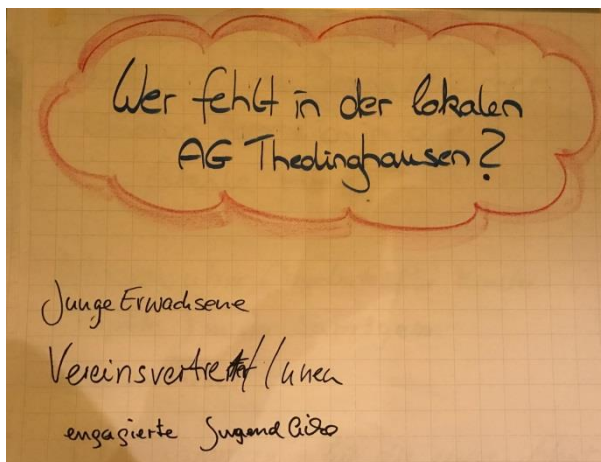 Wer fehlt in der lokalen
AG Thedinghausen?
Junge Erwachsene
Vereinsvertreter/innen
engagierte